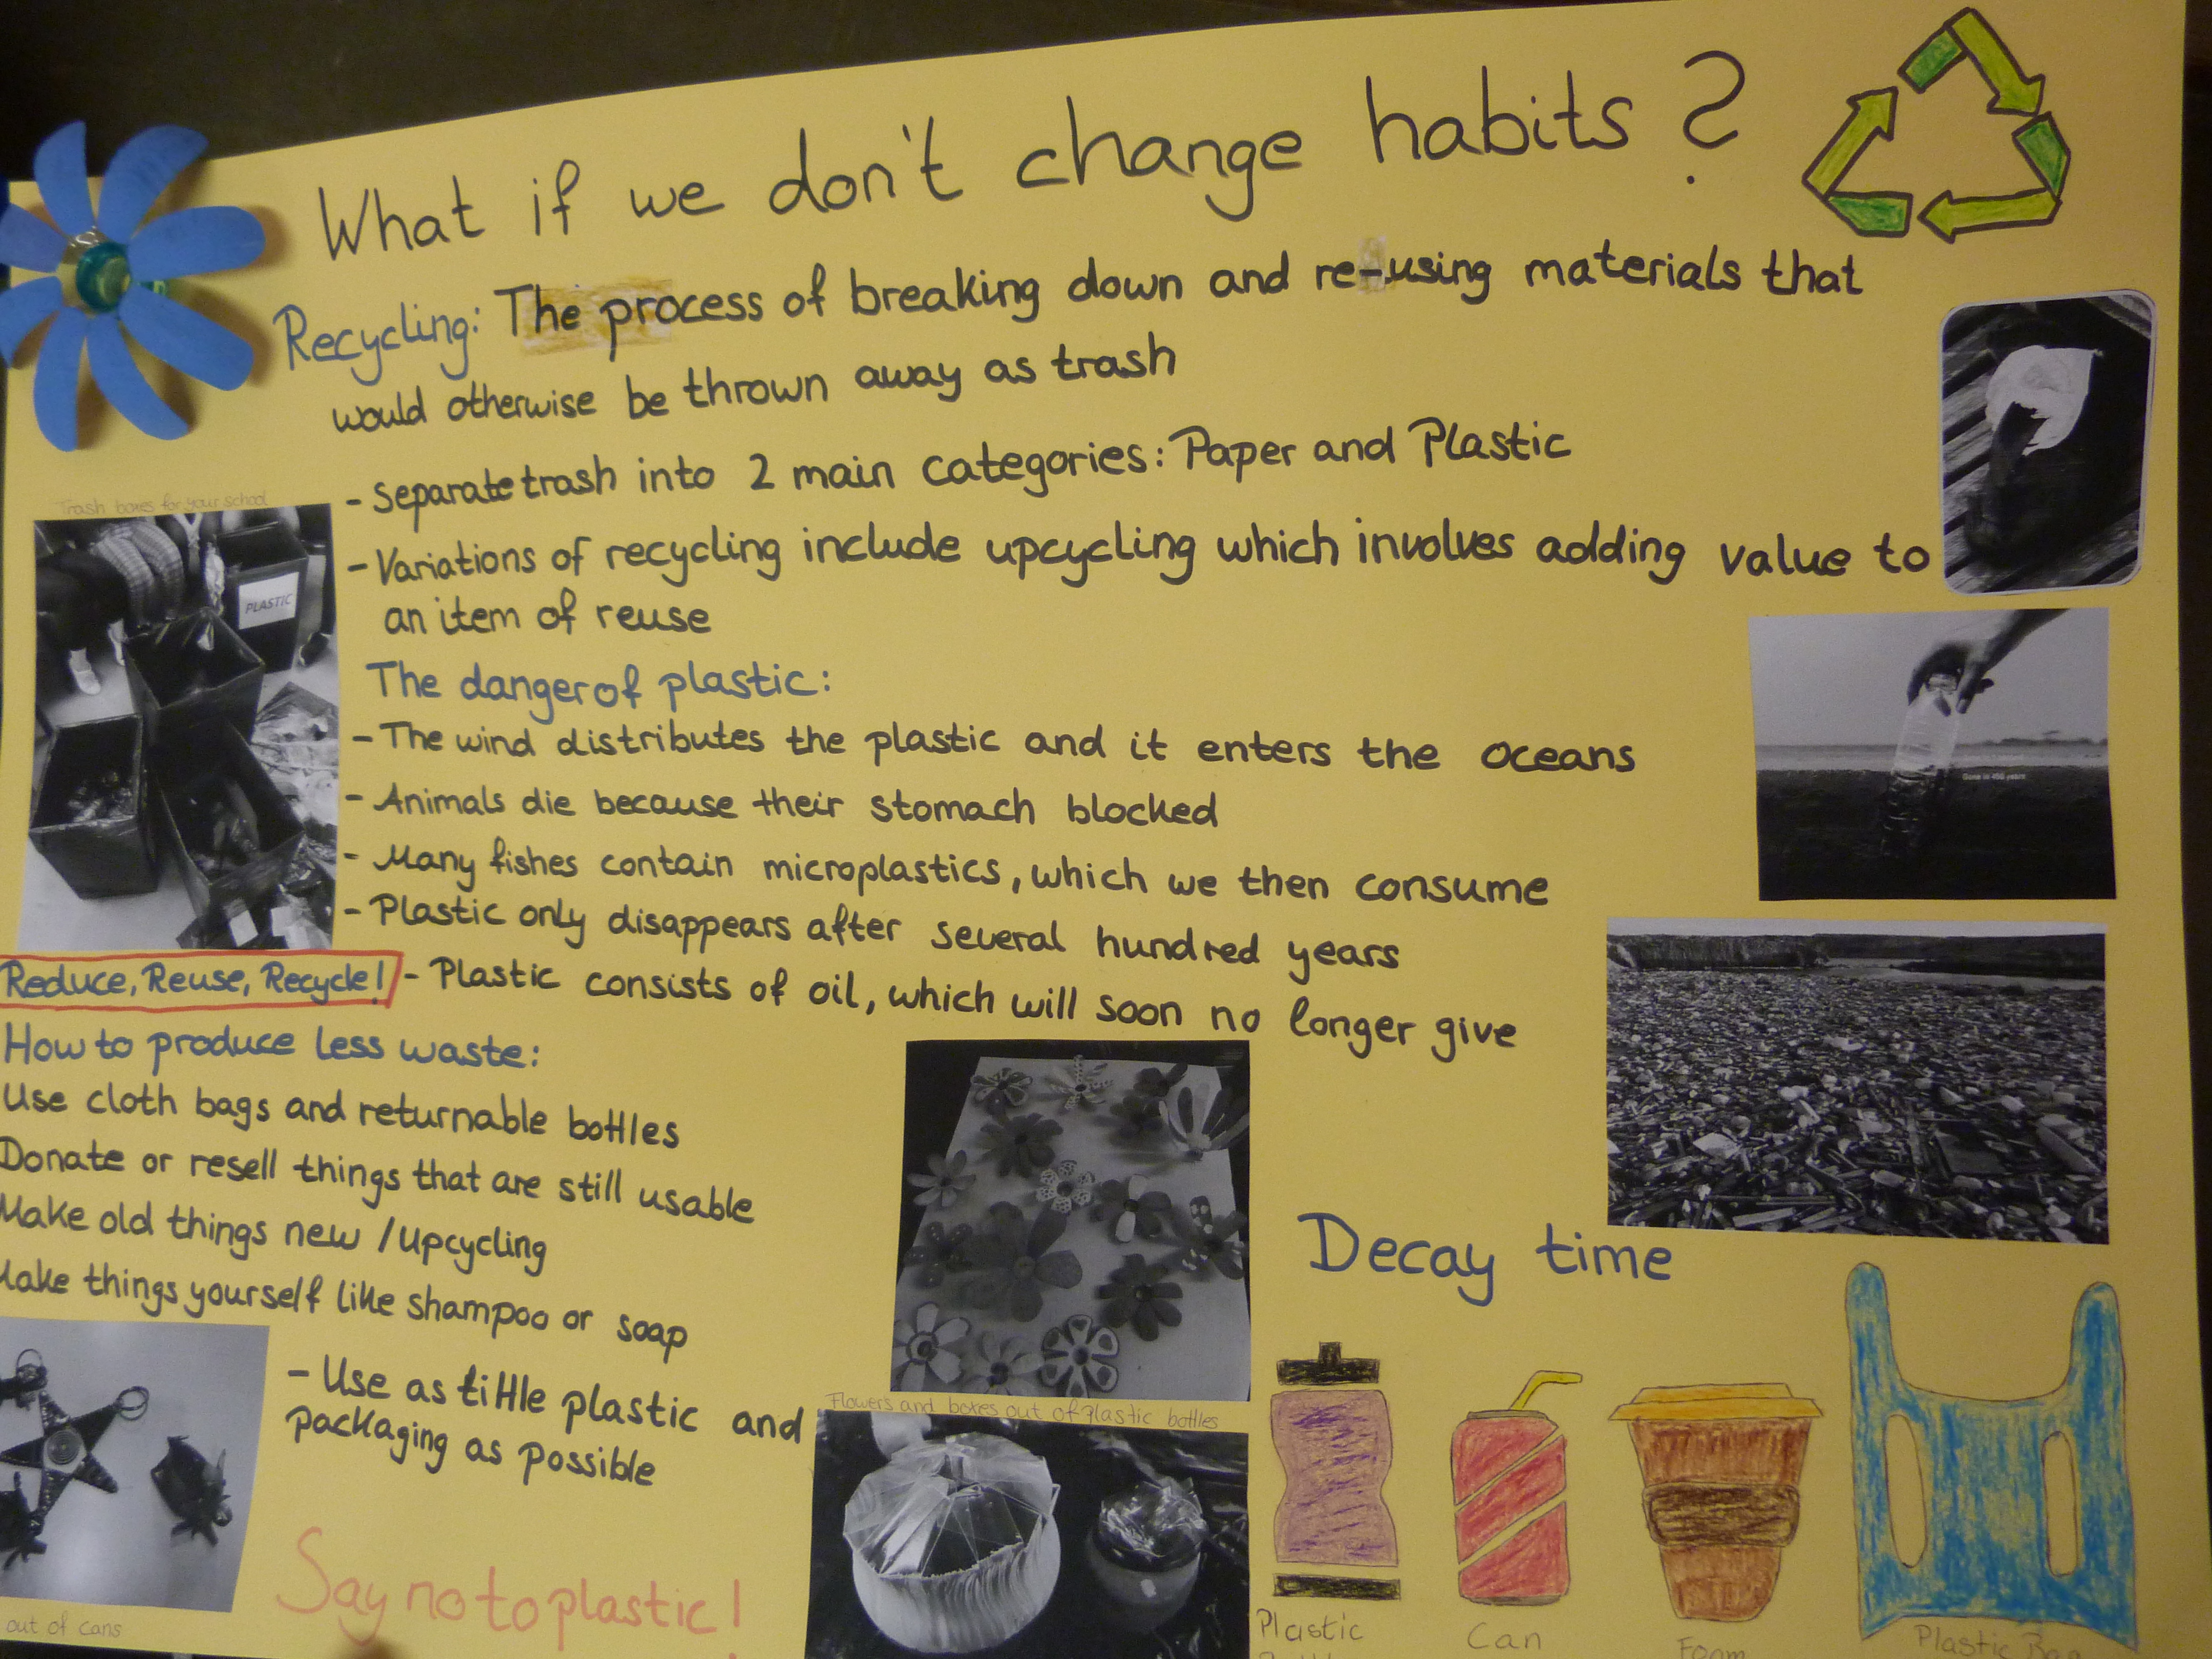 What if we don't change habits?
Recycling: The process of breaking down and re-using materials that
would otherwise be thrown away as trash
- Separate trash into 2 main categories: Paper and Plastic
- Variations of recycling include upcycling which involves adding value to
an item of reuse
Trash boxes for your school
PLASTIC
The danger of plastic:
- The wind distributes the plastic and it enters the oceans
- Animals die because their stomach blocked
- Many fishes contain microplastics, which we then consume
- Plastic only disappears after several hundred years
- Plastic consists of oil, which will soon no longer give
Gone in 450 years
Reduce, Reuse, Recycle!
How to produce less waste:
Use cloth bags and returnable bottles
Donate or resell things that are still usable
Make old things new / upcycling
Make things yourself like shampoo or soap
- Use as tittle plastic and
packaging as possible
out of cans
Say no to plastic!
Flowers and boxes out of plastic bottles
Decay time
Plastic
Can
Foam
Plastic Bag